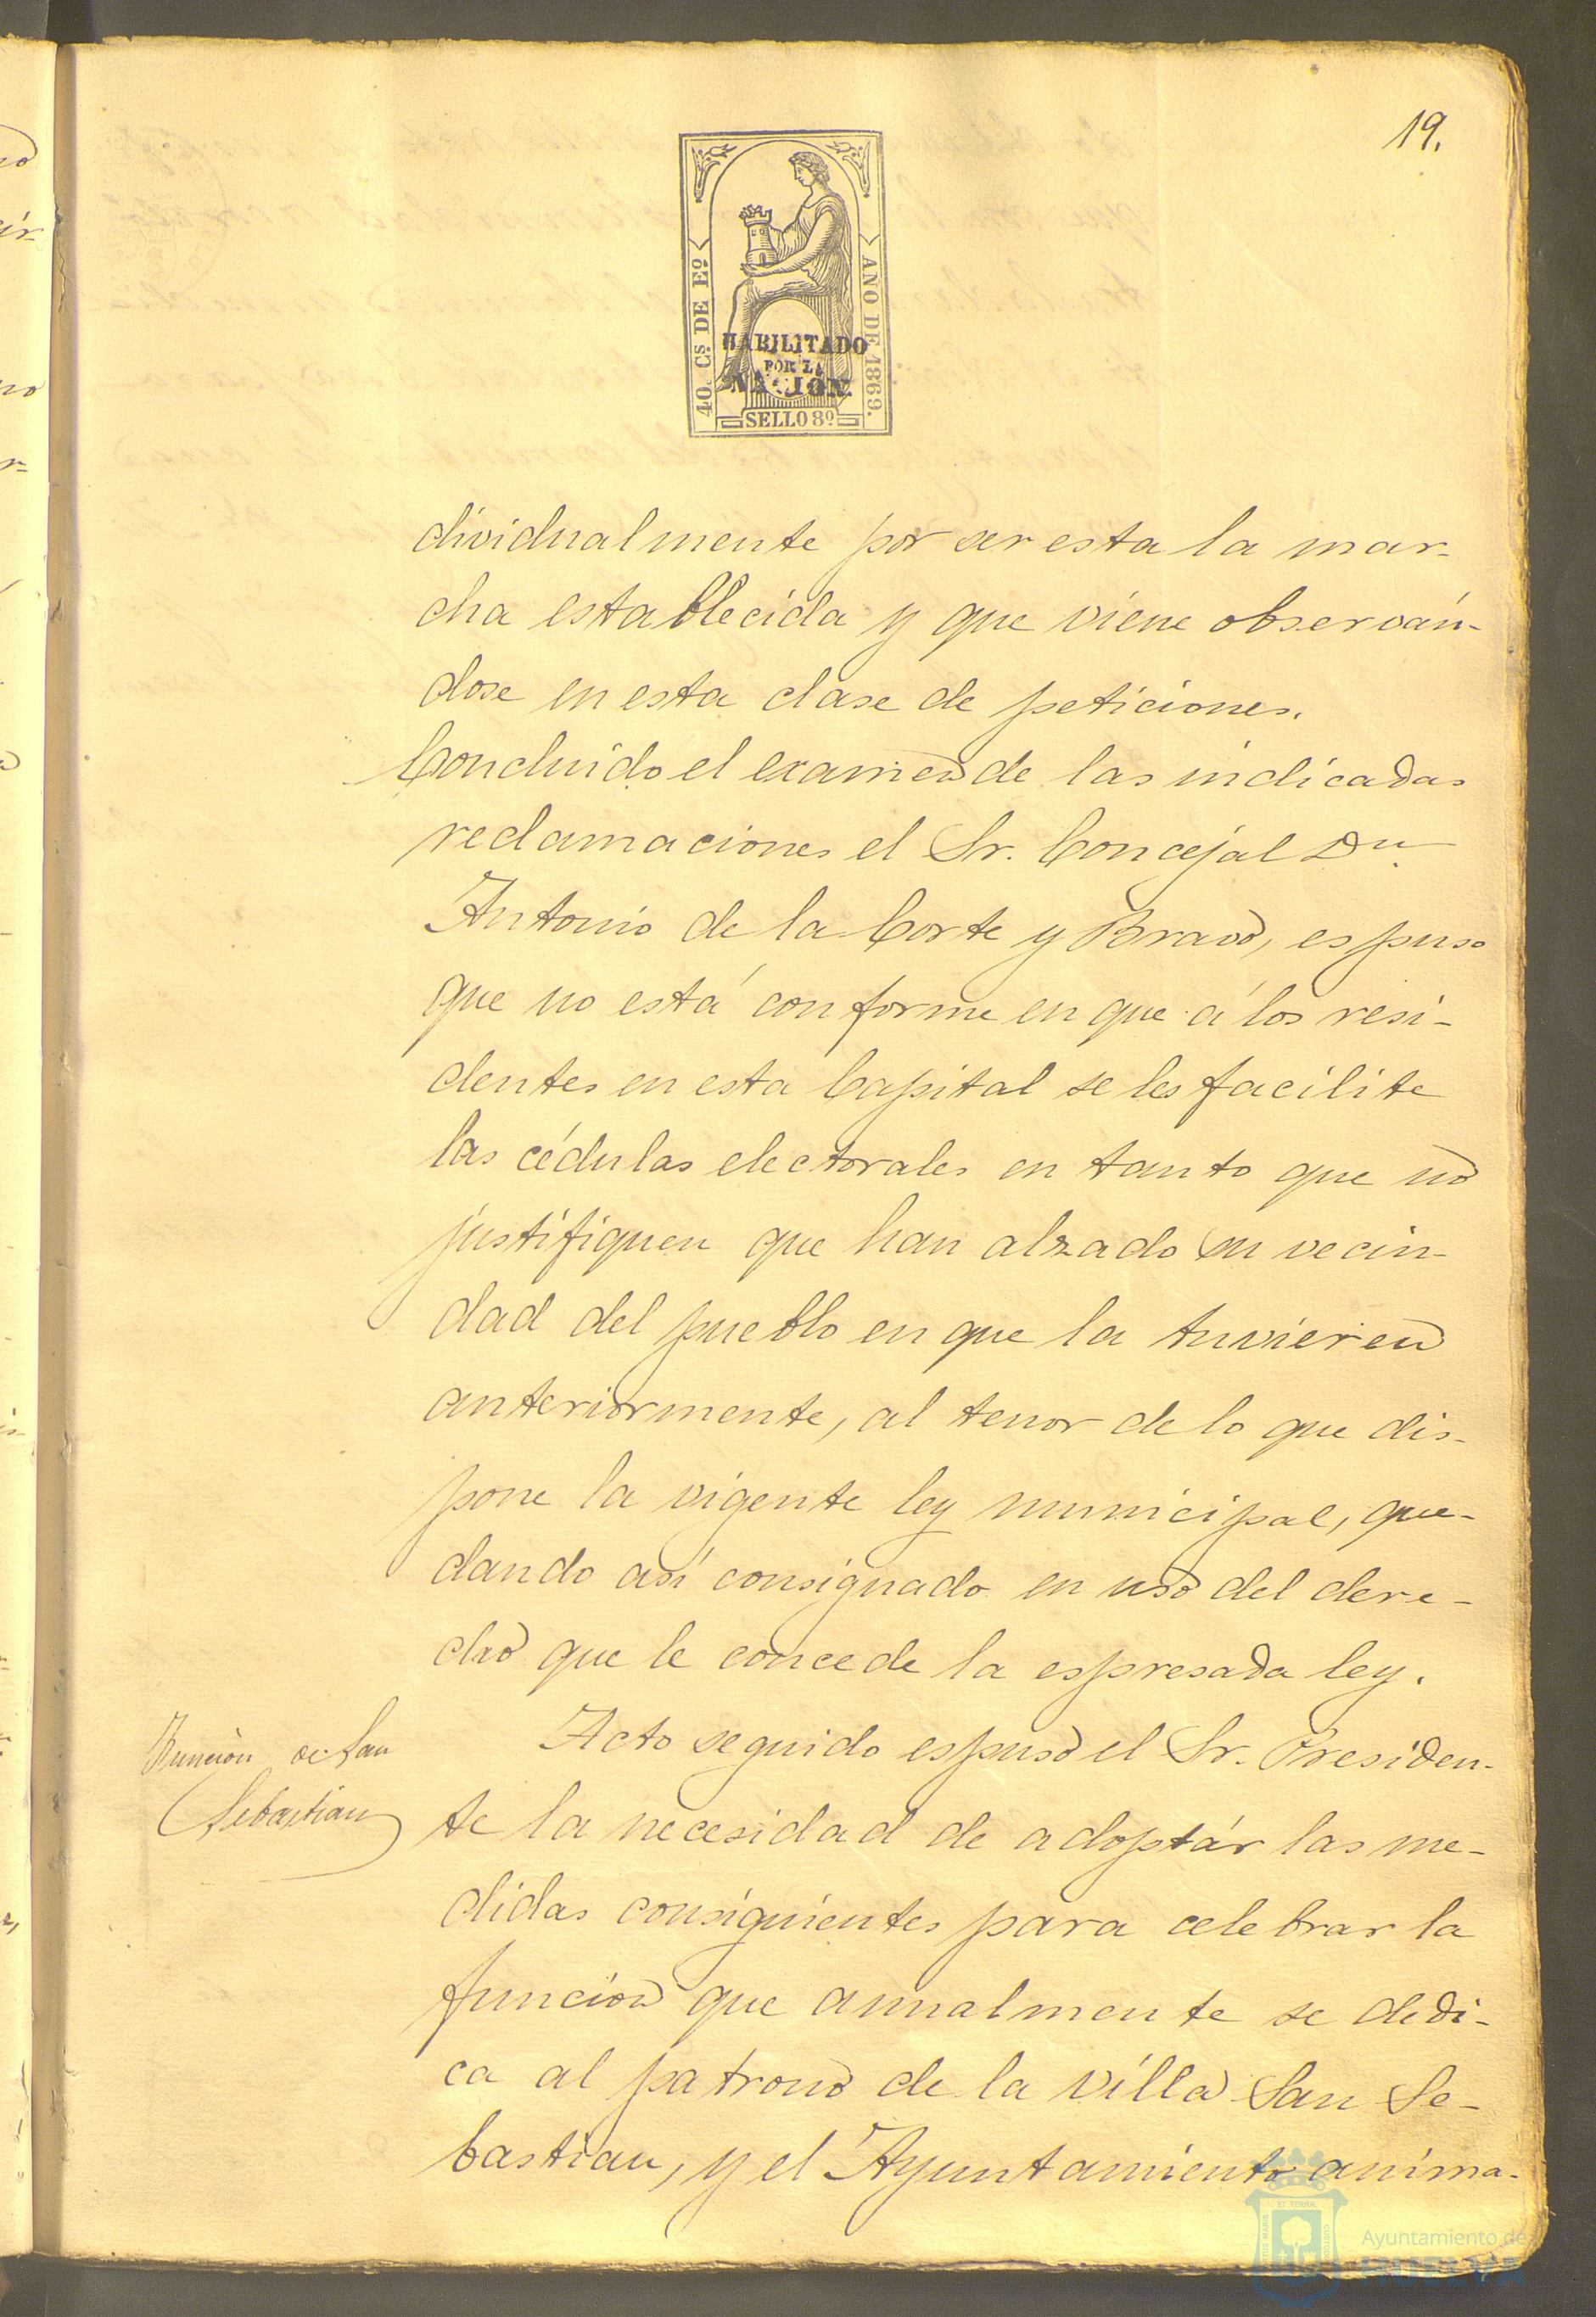 19.
40. Cs. DE Eo.
AÑO DE 1869.
HABILITADO
POR LA
NACION.
SELLO 8o.
dividualmente por ser esta la mar-
cha establecida y que viene observán-
dose en esta clase de peticiones.
Concluido el examen de las indicadas
reclamaciones el Sr. Concejal Dn.
Antonio de la Corte y Bravo, espuso
que no está conforme en que á los resi-
dentes en esta Capital se les facilite
las cédulas electorales en tanto que no
justifiquen que han alzado su vecin-
dad del pueblo en que la tuvieren
anteriormente, al tenor de lo que dis-
pone la vigente ley municipal, que-
dando así consignado en uso del dere-
cho que le concede la espresada ley.
Funcion de San
Sebastian
Acto seguido espuso el Sr. Presiden-
te la necesidad de adoptár las me-
didas consiguientes para celebrar la
funcion que anualmente se dedi-
ca al patrono de la villa San Se-
bastian, y el Ayuntamiento anima-
Ayuntamiento de
HUELVA